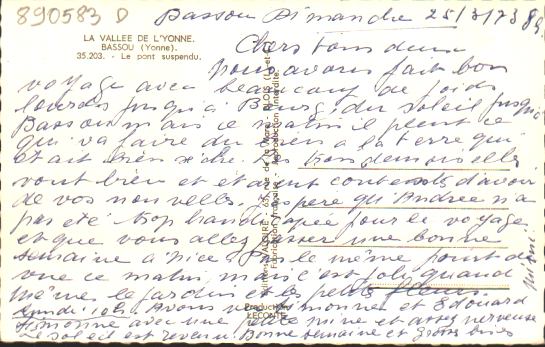 890583 D
Bassou Dimanche 25/3/73 89
LA VALLEE DE L'YONNE.
BASSOU (Yonne).
35.203. - Le pont suspendu.
Chers tous deux
nous avons fait bon
voyage avec beaucoup de poids
lourds jusqu'à Bourg, du soleil jusqu'à
Bassou mais ce matin il pleut ce
qui va faire du bien à la terre qui
était bien sèche. Les bons demoiselles
vont bien et étaient contentes d'avoir
de vos nouvelles. J'espère qu'Andrée n'a
pas été trop handicapée pour le voyage
et que vous allez passer une bonne
semaine à Nice. Pas le même point de
vue ce matin, mais c'est joli quand
même le jardin et les petites fleurs
Lundi 10h. Avons vu Simonne et Edouard
Simonne avec une petite mine et assez nerveuse
Le soleil est revenu. Bonne semaine et gross bises
Fabrication française - Reproduction
Production
LECONTE